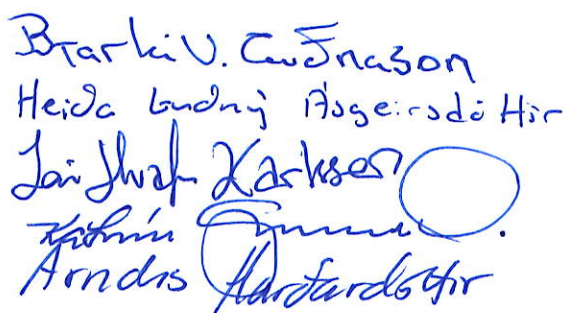 Bjarki V. Guðnason
Heiða Guðný Ásgeirsdóttir
Jón Hrafn Karlsson
Katrín
Arndís Harðardóttir